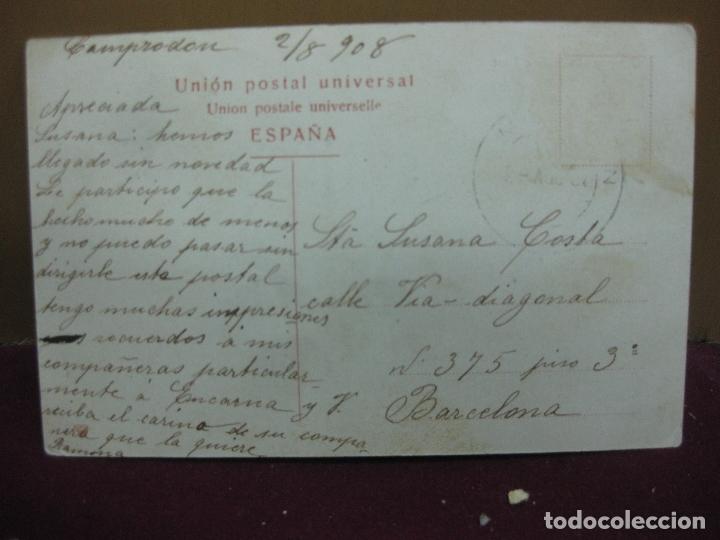 Camprodon 2/8 908
Unión postal universal
Union postale universelle
ESPAÑA
Apreciada
Susana: hemos
llegado sin novedad
Le participo que la
hecho mucho de menos
y no puedo pasar sin
dirigirle esta postal
tengo muchas impresiones
recuerdos á mis
compañeras particular-
mente á Encarna y V.
reciba el cariño de su compa-
ñera que la quiere
Ramona
Sta Susana Costa
calle Via-diagonal
N. 375 piso 3º
Barcelona
todocoleccion
todocoleccion.net